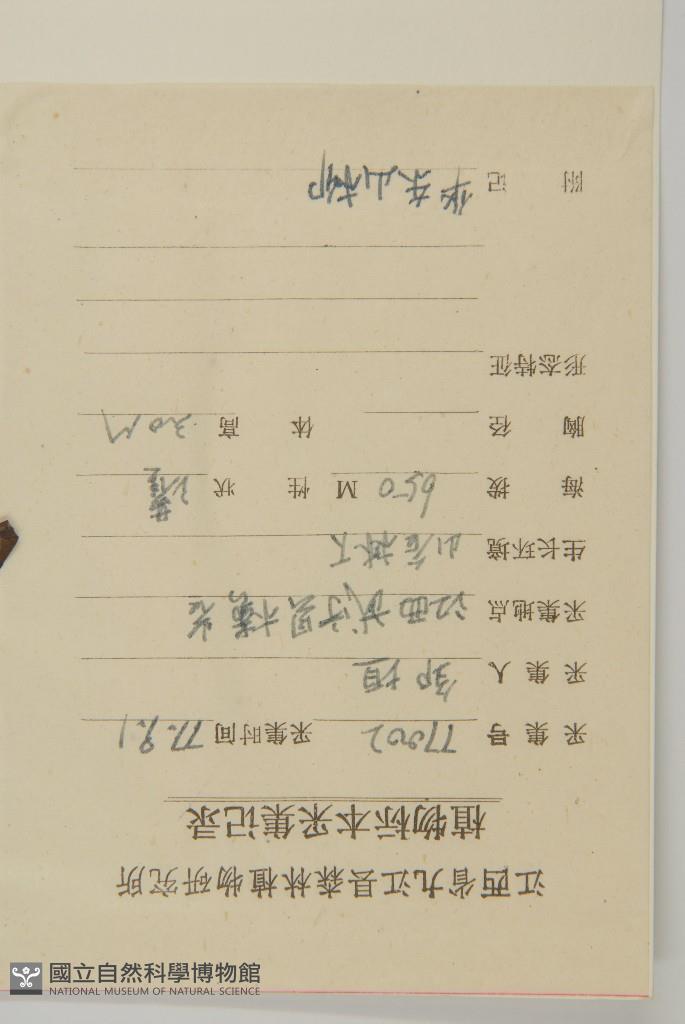 江西省九江县森林植物研究所
植物标本采集记录
采集号 77002 采集时间 77.9.1
采集人 邹垣
采集地点 江西武宁县
生长环境 山谷林下
海拔 650 M 性状 灌
胸径 体高 3.0M
形态特征
附记 华东山柳
國立自然科學博物館
NATIONAL MUSEUM OF NATURAL SCIENCE